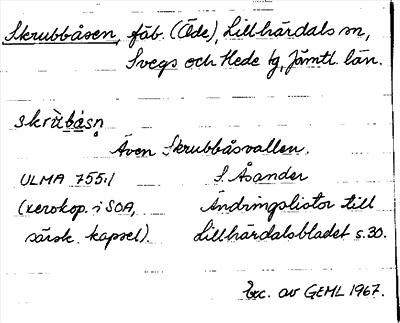 Skrubbåsen, fäb. (Öde), Lillhärdals sn,
Svegs och Hede tg, Jämtl. län.
skrùbåsn
Även Skrubbåsvallen.
ULMA 755:1 S. Åsander
(xerokop. i SOA, Ändringslistor till
särsk. kapsel). Lillhärdalsbladet s. 30.
Exc. av GEML 1967.